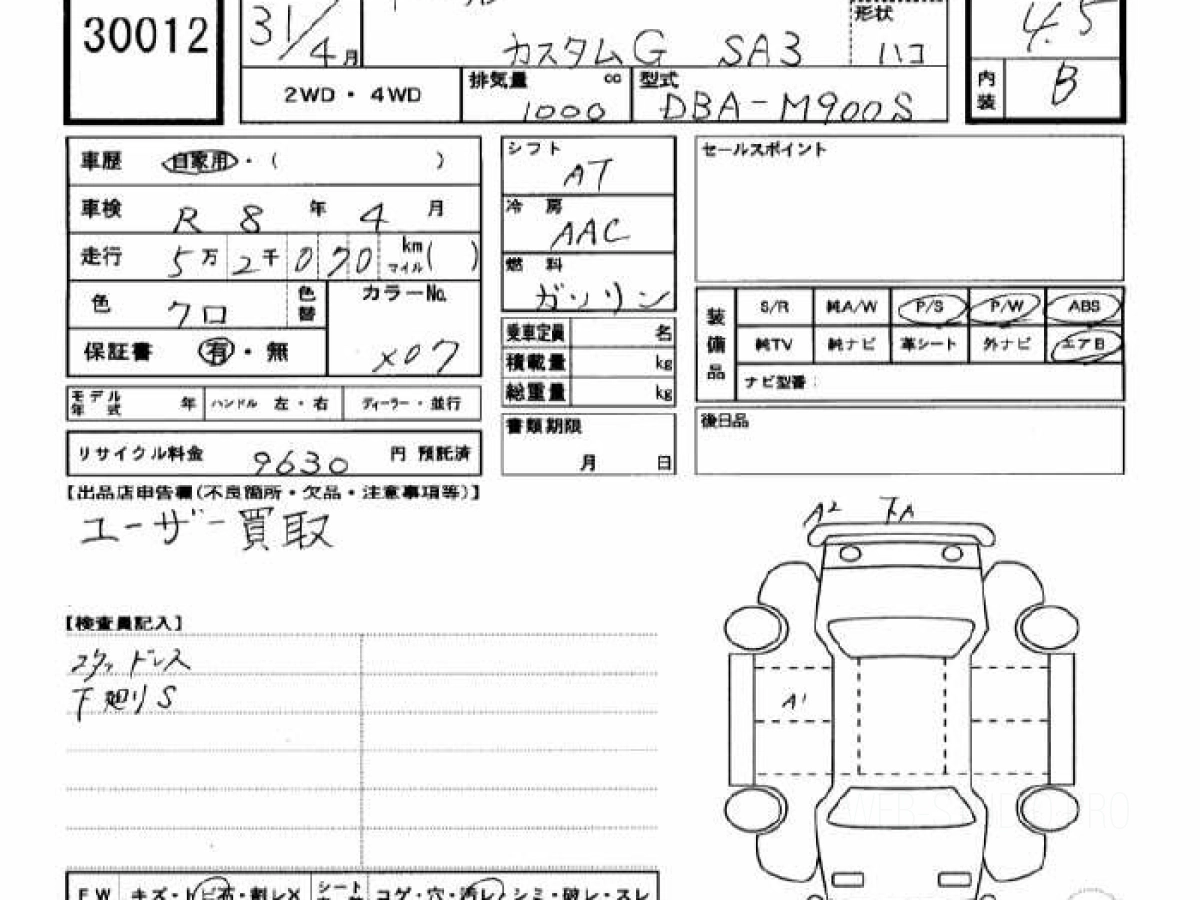 30012
31/4月
カスタムG SA3
形状
ハコ
4.5
2WD・4WD
排気量 cc
1000
型式
DBA-M900S
内装 B
車歴 自家用・( )
車検 R 8 年 4 月
走行 5万2千070 km マイル( )
色 クロ
色替
カラーNo.
X07
保証書 有・無
モデル年式 年 ハンドル 左・右 ディーラー・並行
リサイクル料金 9630 円 預託済
シフト
AT
冷房
AAC
燃料
ガソリン
乗車定員 名
積載量 kg
総重量 kg
書類期限
月 日
セールスポイント
装備品
S/R 純A/W P/S P/W ABS
純TV 純ナビ 革シート 外ナビ エアB
ナビ型番:
後日品
【出品店申告欄(不良箇所・欠品・注意事項等)】
ユーザー買取
【検査員記入】
スタッドレス
下廻りS
A2 下A
A1
WEB-
FW キズ・トビ石・割レX
シート
コゲ・穴・汚レ・シミ・破レ・スレ